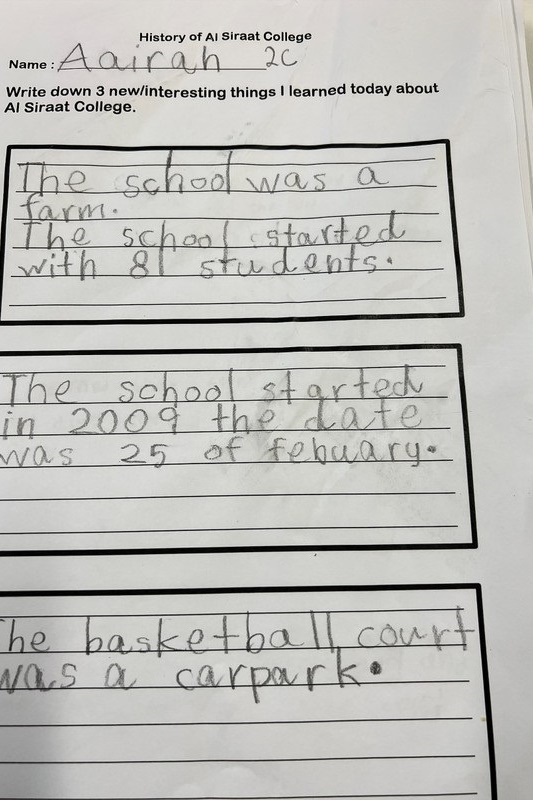 History of Al Siraat College
Name : Aairah 2C
Write down 3 new/interesting things I learned today about
Al Siraat College.
The school was a
farm.
The school started
with 81 students.
The school started
in 2009 the date
was 25 of febuary.
The basketball court
was a carpark.